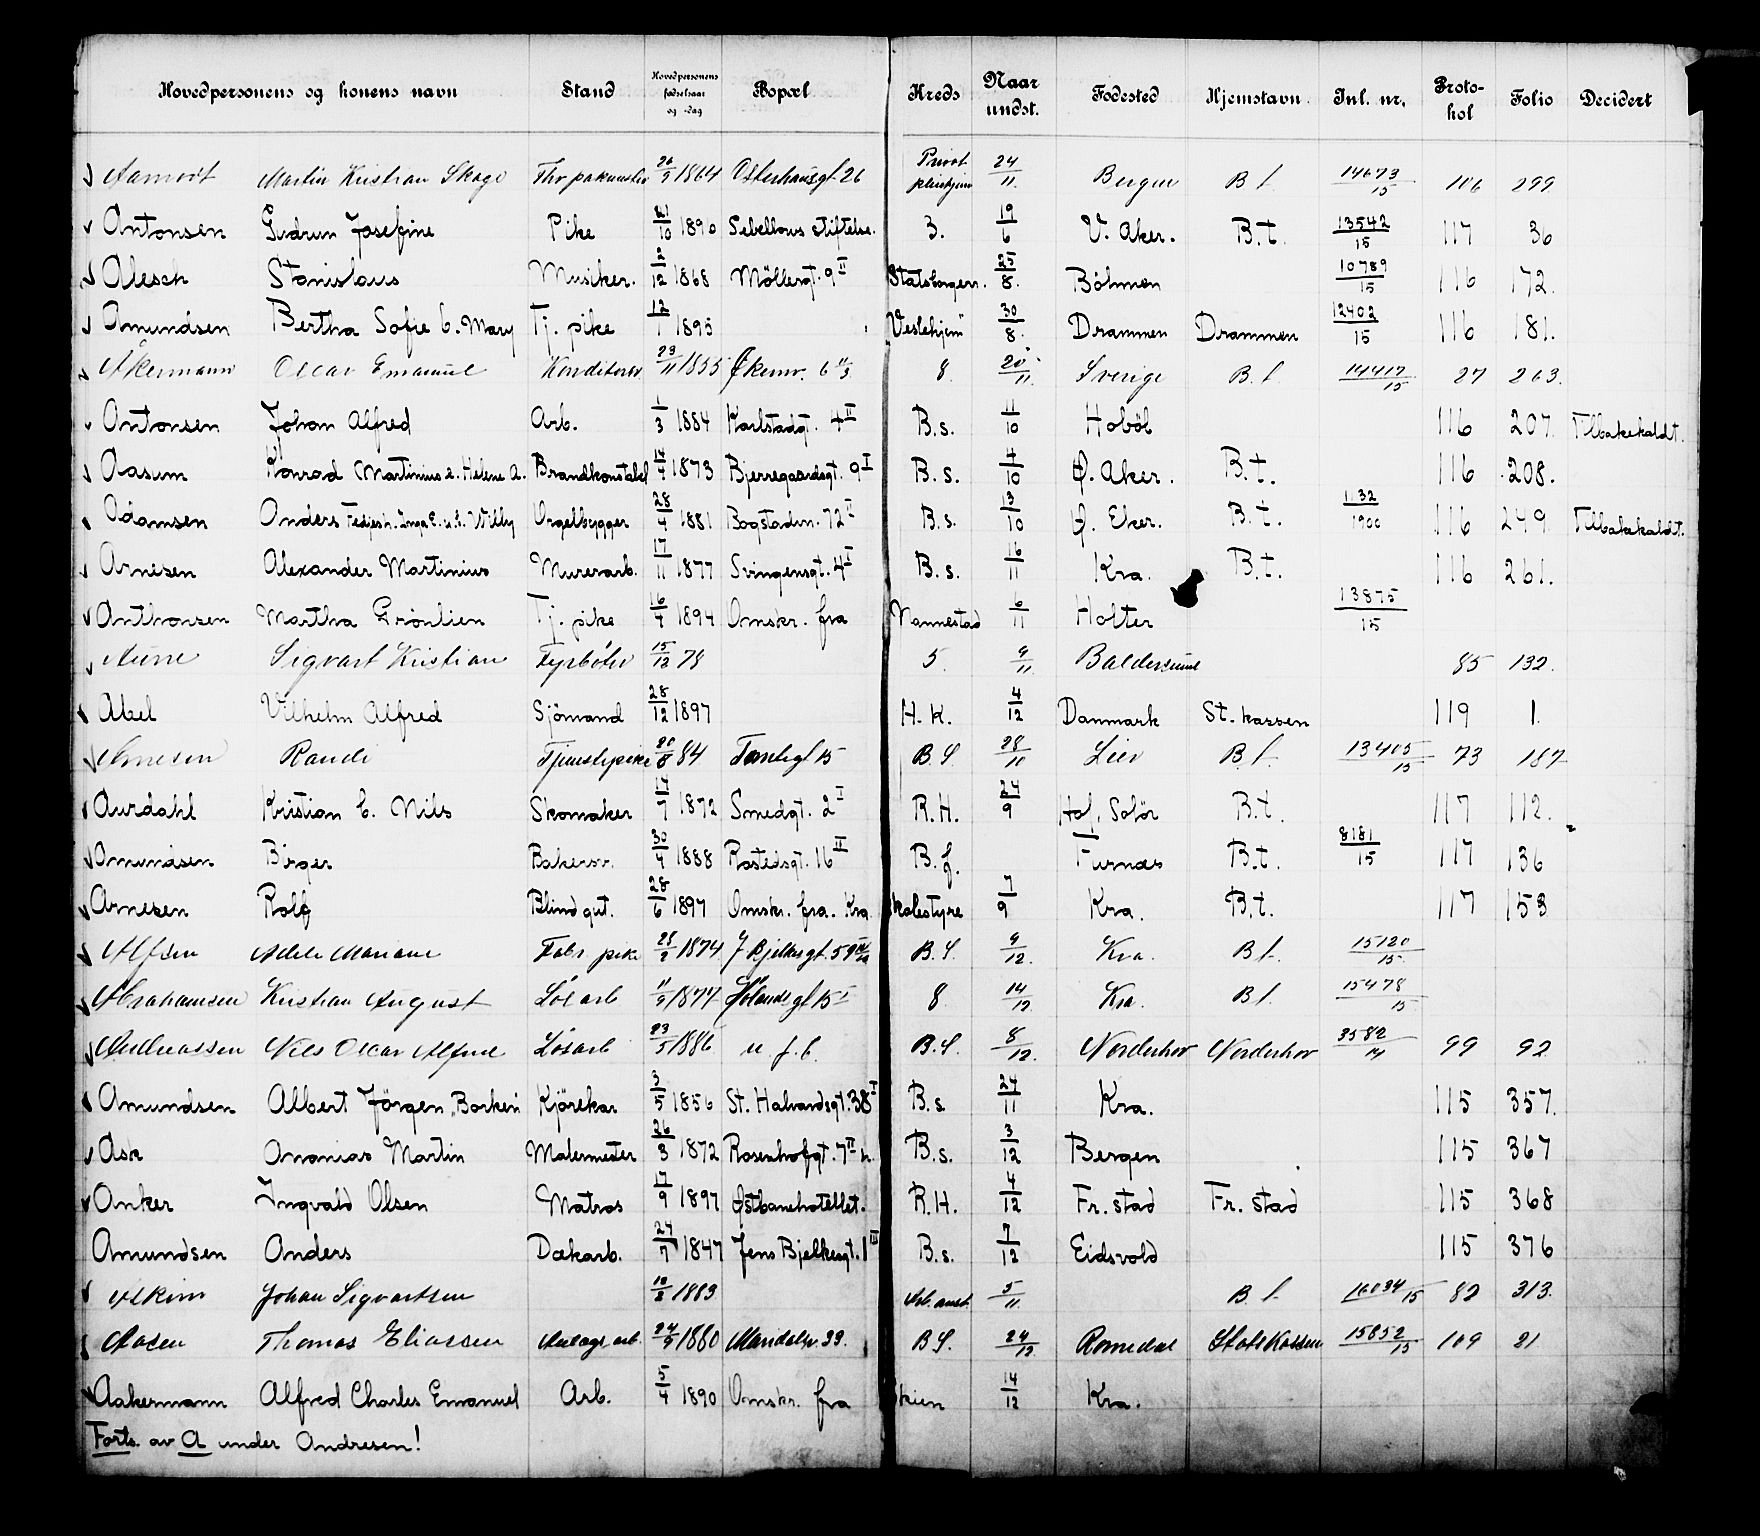 Hovedpersonens og konens navn Stand Hovedpersonens fødselsaar og -dag Bopæl Kreds Naar undst. Fødested Hjemstavn Jnl. nr. Proto-kol Folio Decidert
Aamodt Martin Kristian Skage 26/9 1864 Osterhausgt. 26 Privat pleiehjem 24/11 Bergen B t. 14673/15 106 299
Antonsen Gudrun Josefine Pike 21/10 1890 Sebelbows stiftelse. 3. 19/6 V. Aker. B.t. 13542/15 117 36
Alesch Stanislaus Musiker. 2/12 1868 Möllergt. 9 II Statsborgerr. 25/8. Böhmen 10789/15 116 172.
Amundsen Bertha Sofie C. Mary Tj. pike 12/1 1895 Veslehjem 30/8. Drammen Drammen 12402/15 116 181.
Åkermann Oscar Emanuel Konditorsv. 23/11 1855 Økernv. 6 8 20/11. Sverige B. t. 14417/15 27 263.
Antonsen Johan Alfred Arb. 1/3 1884 Karlstadgt. 4 II B.s. 11/10 Hoböl 116 207. Tilbakekaldt.
Aasum Konrad Martinius e. Helene A. Brandkonstabel 14/4 1873 Bjerregaardsgt. 9 I B.s. 4/10 Ø. Aker. B.t. 116 208.
Adamsen Anders Fedjesh. Inga E. u. S. Willy Orgelbygger 28/4 1881 Bogstadvn. 72 II B.s. 13/10 Ø. Eker. B.t. 1132/1900 116 249 Tilbakekaldt.
Arnesen Alexander Martinius Murerarb. 17/11 1877 Svingensgt. 4 I B.s. 16/11 Kra. B.t. 116 261.
Anthonsen Martha Grönlien Tj. pike 16/4 1894 Omskr. fra Nannestad 6/11 Holter 13875/15
Aune Sigvart Kristian Fyrböter 15/12 78 5. 9/11 Baldersund 85 132.
Abel Vilhelm Alfred Sjömand 28/12 1897 H.K. 4/12 Danmark St. kassen 119 1.
Arnesen Randi Tjenestepike 20/8 84 Tomtegt 15 B.S. 28/10 Lier B t. 13405/15 73 187
Aurdahl Kristian C. Nils Skomaker 17/7 1872 Smedgt. 2 I R.H. 24/9 Hof, Solör B.t. 117 112.
Amundsen Birger Bakersv. 30/4 1888 Rostedsgt. 16 II B.f. Furnæs B.t. 8181/15 117 136
Arnesen Rolf Blind gut. 28/6 1897 Omskr. fra. Kra. skolestyre 7/9 Kra. B.t. 117 153
Alfsen Adele Mariane Fabr. pike 28/2 1874 J Bjelkesgt. 59 B.S. 9/12. Kra. B t. 15120/15
Abrahamsen Kristian August Løsarb 11/9 1877 Hölandsgt 15 I 8 14/12 Kra. B t. 15478/15
Andreassen Nils Oscar Alfred Løsarb 23/5 1886 u. f. b. B.S. 8/12. Norderhov Norderhov 3582/14 99 92
Amundsen Albert Jörgen "Borken" Kjörekar 3/5 1856 St. Halvardsgt. 38 I B.s. 24/11 Kra. 115 357.
Ask Ananias Martin Malermester 26/3 1872 Rosenhofgt. 7 II h. B.s. 3/12 Bergen 115 367
Anker Ingvald Olsen Matros 17/9 1897 Østbanehotellet. R.H. 4/12 Fr. stad Fr. stad 115 368
Amundsen Anders Dækarb. 24/7 1847 Jens Bjelkesgt. 1 III B.s. 7/12 Eidsvold 115 376
Askim Johan Sigvartsen 10/2 1883 Arb. anst. 5/11 B. t. 16034/15 82 313.
Aasen Thomas Eliassen Anlegs arb. 24/9 1880 Maridalsv. 33. B.S. 24/12. Romedal Stats Kassen 15852/15 109 21
Aakermann Alfred Charles Emanuel Arb. 5/4 1890 Omskr. fra Skien 14/12 Kra.
Forts. av A under Andresen!